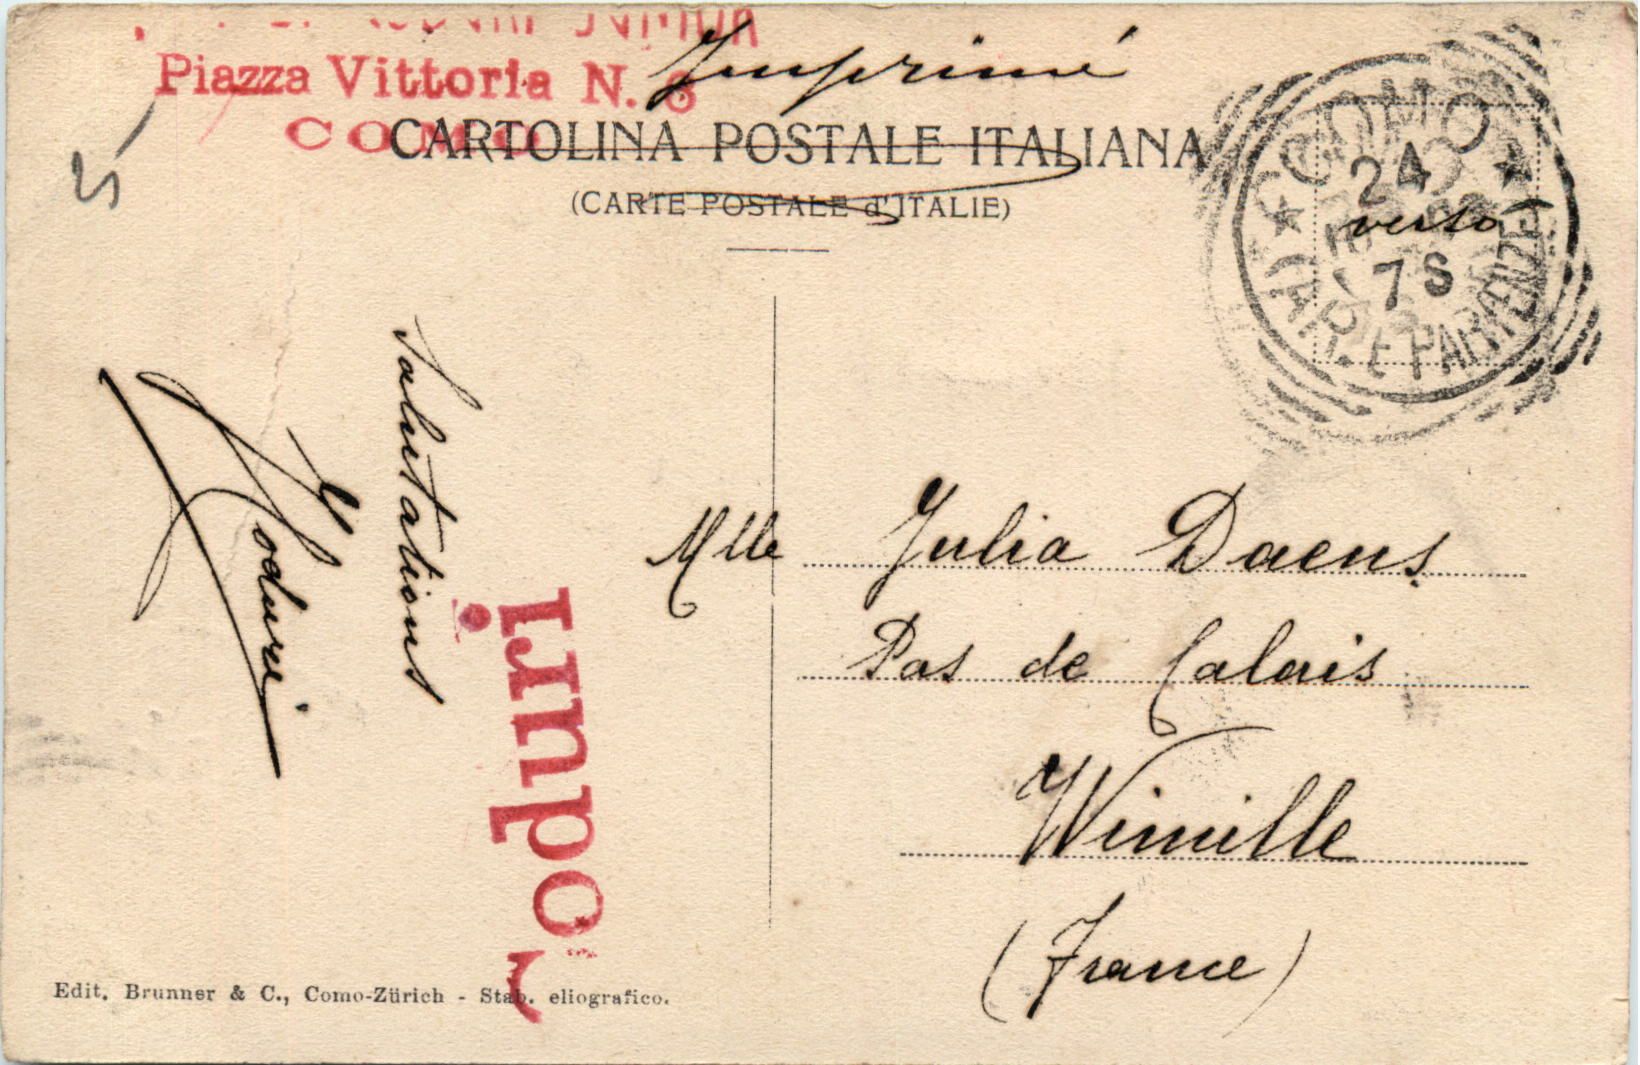 JUNIOR
Piazza Vittoria N. 6
COMO
Imprimé
CARTOLINA POSTALE ITALIANA
(CARTE POSTALE d'ITALIE)
COMO
24
verso
7 S
(ARR. E PARTENZE)
5
Salutations
Coduri
Coduri
Mlle Julia Daens
Pas de Calais
Wimille
(France)
Edit. Brunner & C., Como-Zürich - Stab. eliografico.